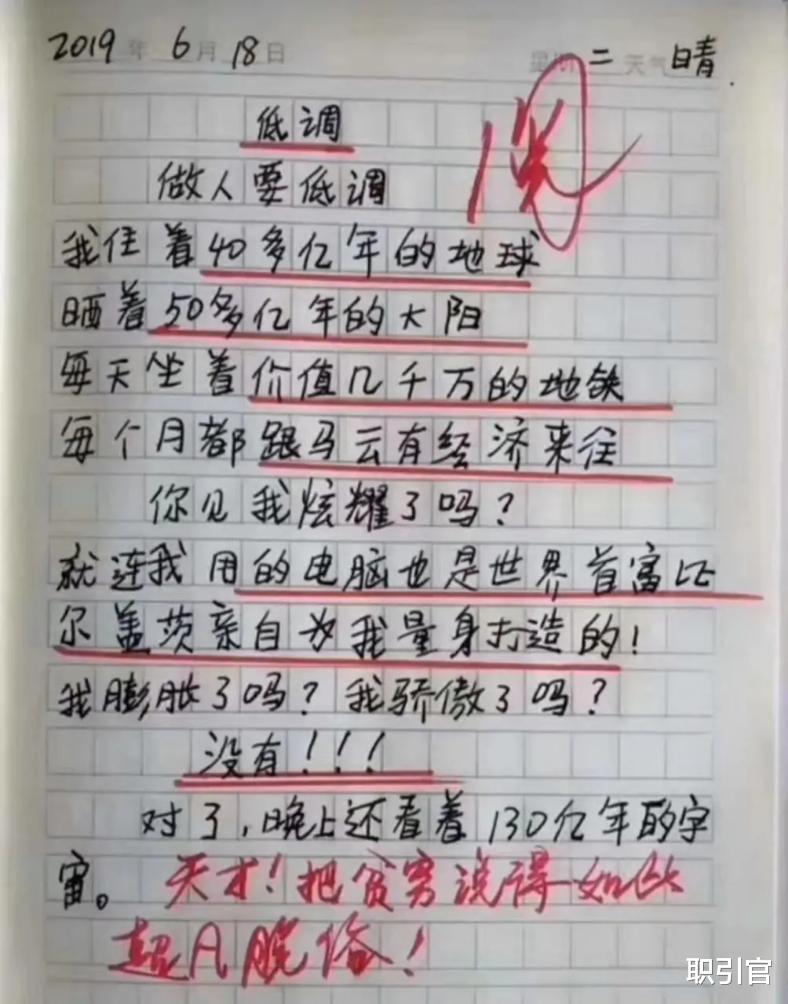 2019年 6月 18日 星期二 天气 晴
低调
做人要低调
我住着40多亿年的地球
晒着50多亿年的太阳
每天坐着价值几千万的地铁
每个月都跟马云有经济来往
你见我炫耀了吗？
就连我用的电脑也是世界首富比
尔盖茨亲自为我量身打造的！
我膨胀了吗？我骄傲了吗？
没有！！！
对了，晚上还看着130亿年的宇
宙。天才！把贫穷说得如此
超凡脱俗！
阅
职引官